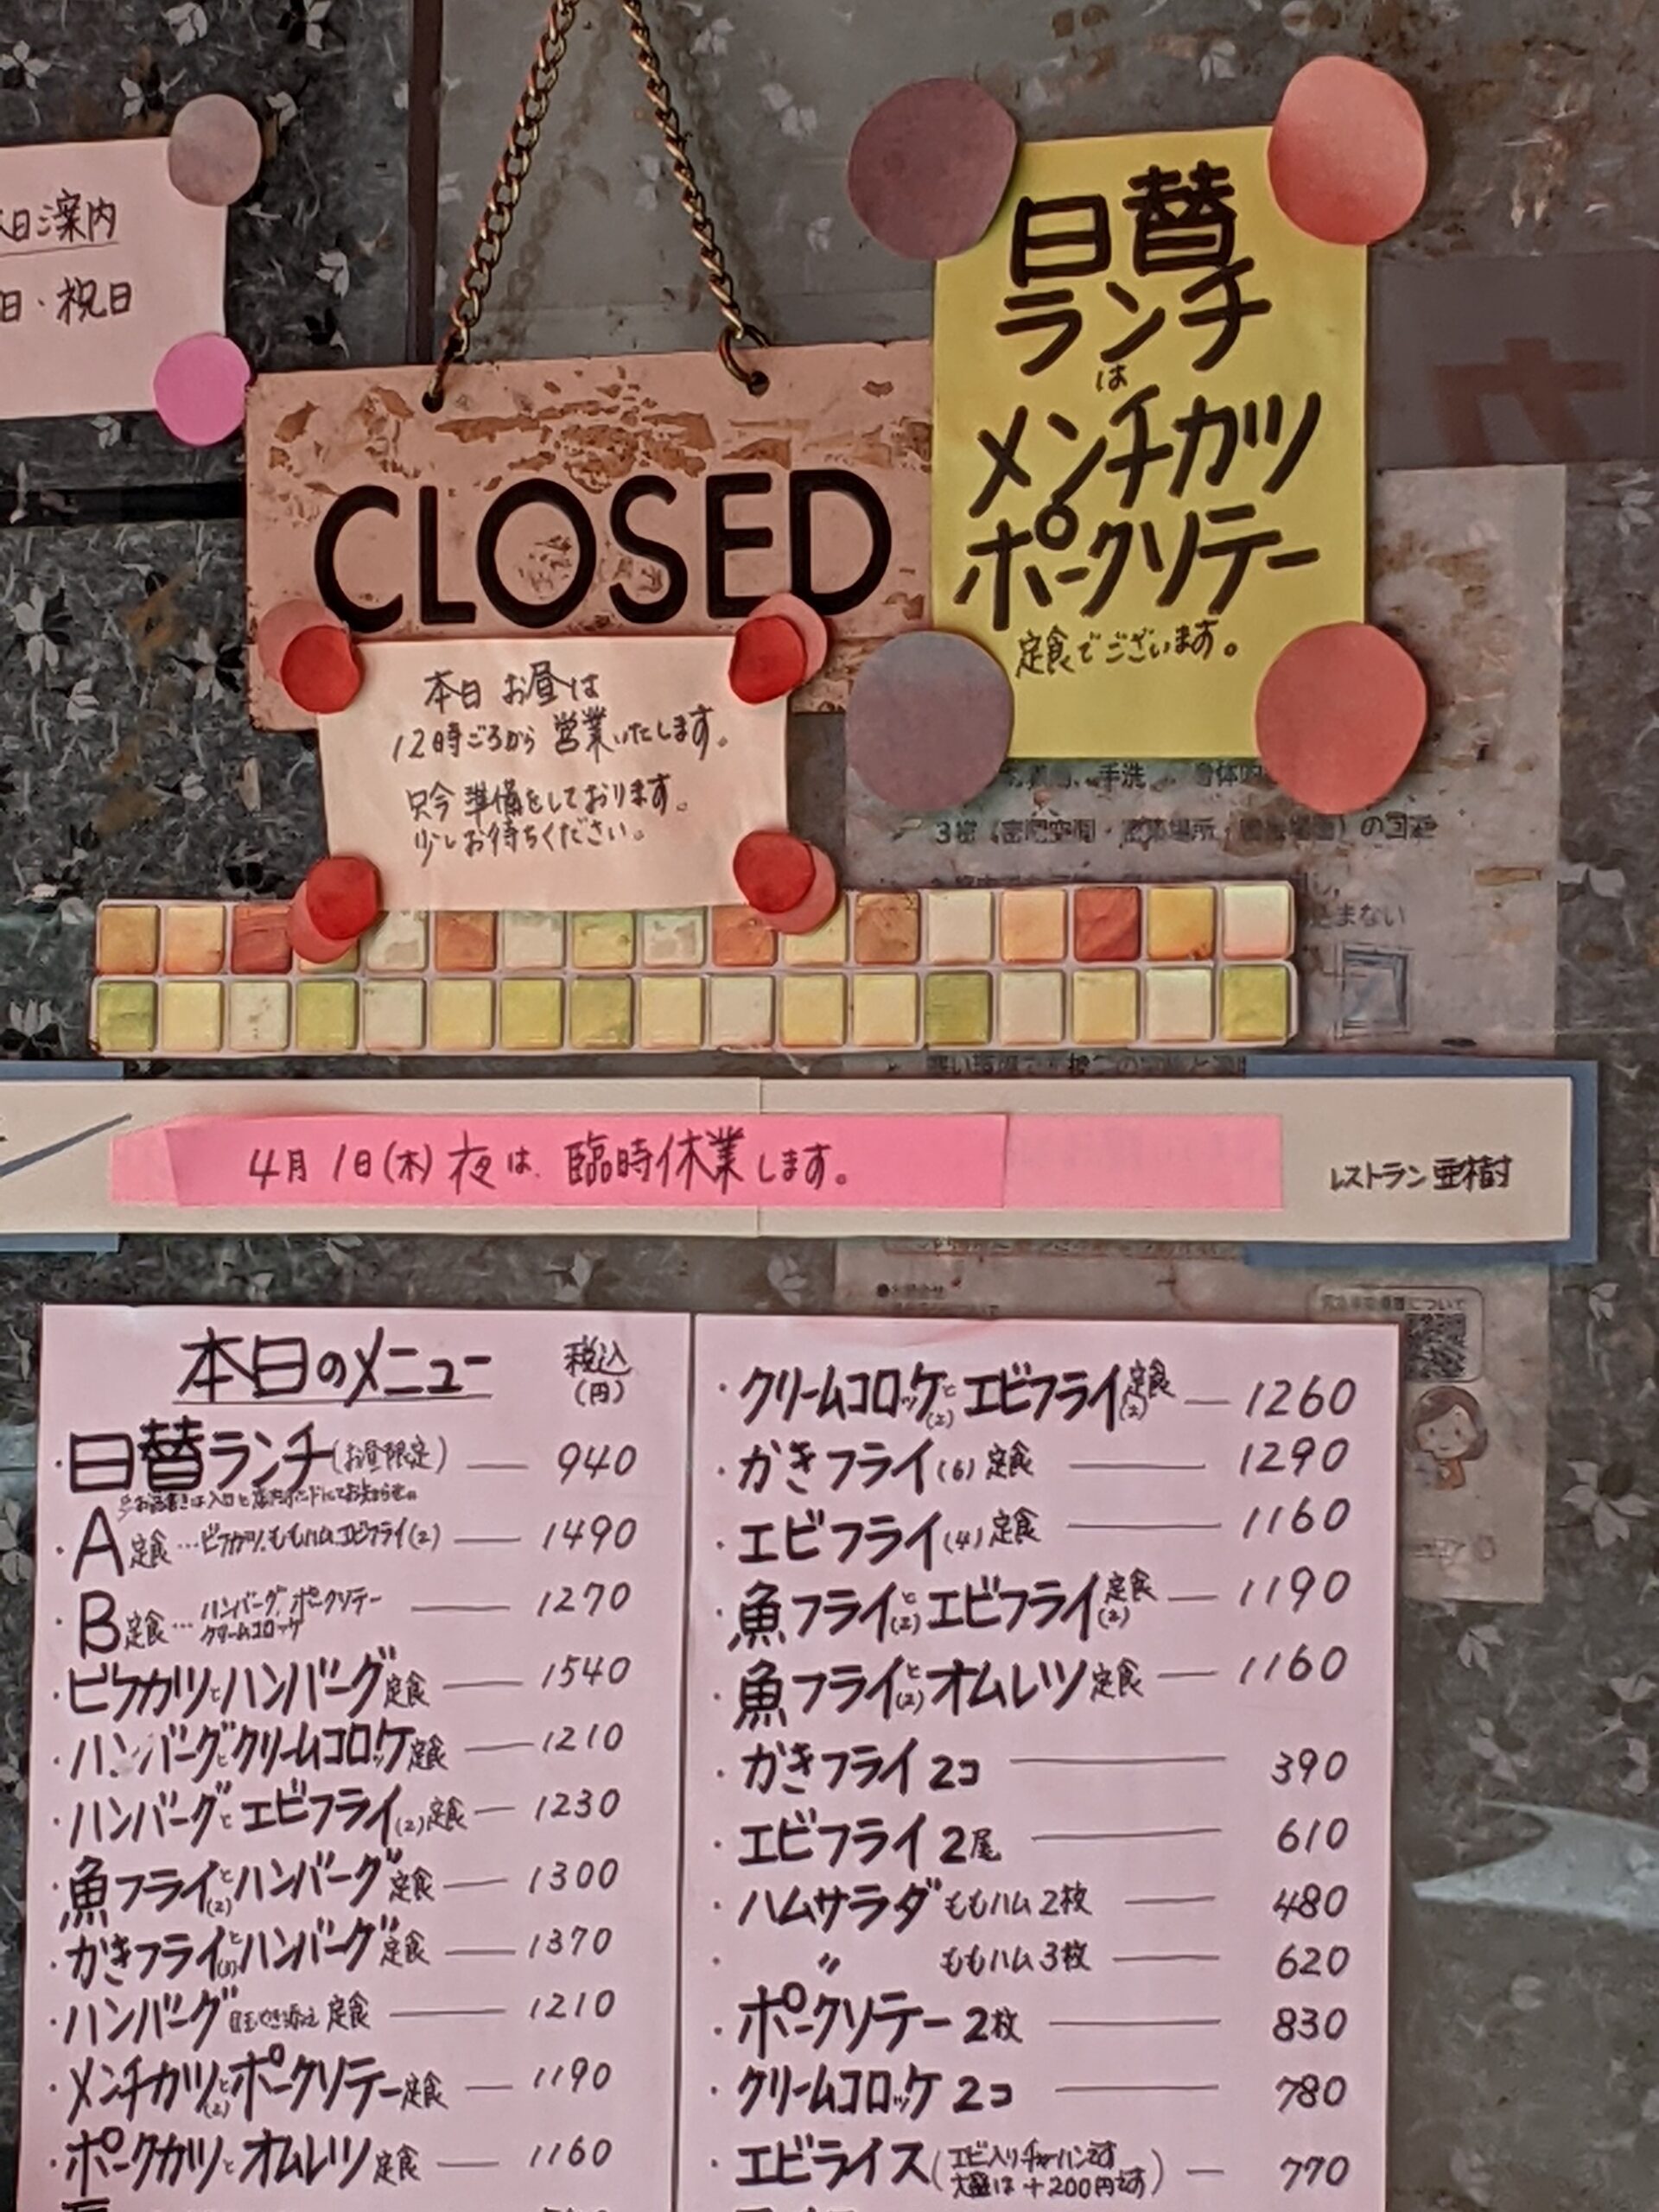 日ご案内
日・祝日
CLOSED
本日 お昼は
12時ごろから 営業いたします。
只今 準備をしております。
少しお待ちください。
日替
ランチ
は
メンチカツ
ポークソテー
定食でございます。
手洗
3密
の回避
4月1日(木)夜は、臨時休業します。
レストラン 亜樹
本日のメニュー 税込(円)
・日替ランチ(お昼限定) — 940
・A定食…ビフカツ、ももハム、エビフライ(2) — 1490
・B定食…ハンバーグ、ポークソテー クリームコロッケ — 1270
・ビフカツとハンバーグ定食 — 1540
・ハンバーグとクリームコロッケ定食 — 1210
・ハンバーグとエビフライ(2)定食 — 1230
・魚フライ(2)とハンバーグ定食 — 1300
・かきフライ(3)とハンバーグ定食 — 1370
・ハンバーグ目玉やき添え定食 — 1210
・メンチカツ(2)とポークソテー定食 — 1190
・ポークカツとオムレツ定食 — 1160
・クリームコロッケ(2)とエビフライ(2)定食 — 1260
・かきフライ(6)定食 — 1290
・エビフライ(4)定食 — 1160
・魚フライ(2)とエビフライ(2)定食 — 1190
・魚フライ(2)とオムレツ定食 — 1160
・かきフライ 2コ — 390
・エビフライ 2尾 — 610
・ハムサラダ ももハム2枚 — 480
・〃 ももハム3枚 — 620
・ポークソテー 2枚 — 830
・クリームコロッケ 2コ — 780
・エビライス(エビ入りチャーハンです 大盛は+200円です) — 770